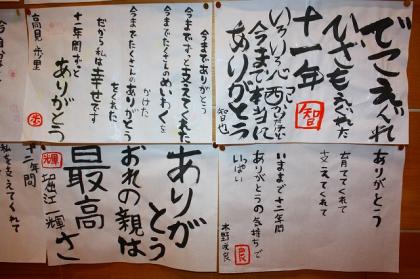 でこえぐれ
ひざもぶれた
十一年
いろいろ心配
今まで本当に
ありがとう
智也
智
今までありがとう
今までずっと支えてくれた
今までたくさんのめいわくを
かけた
たくさんのありがとう
をくれた
だから私は幸せです
十二年間ずっと
ありがとう
高見歩里
ありがとう
育ててくれて
支えてくれて
いままで十二年間
ありがとうの気持ちで
いっぱい
木野
良
ありが
とう
おれの親は
最高さ
堀江一輝
輝
十二年間
私を支えてくれて